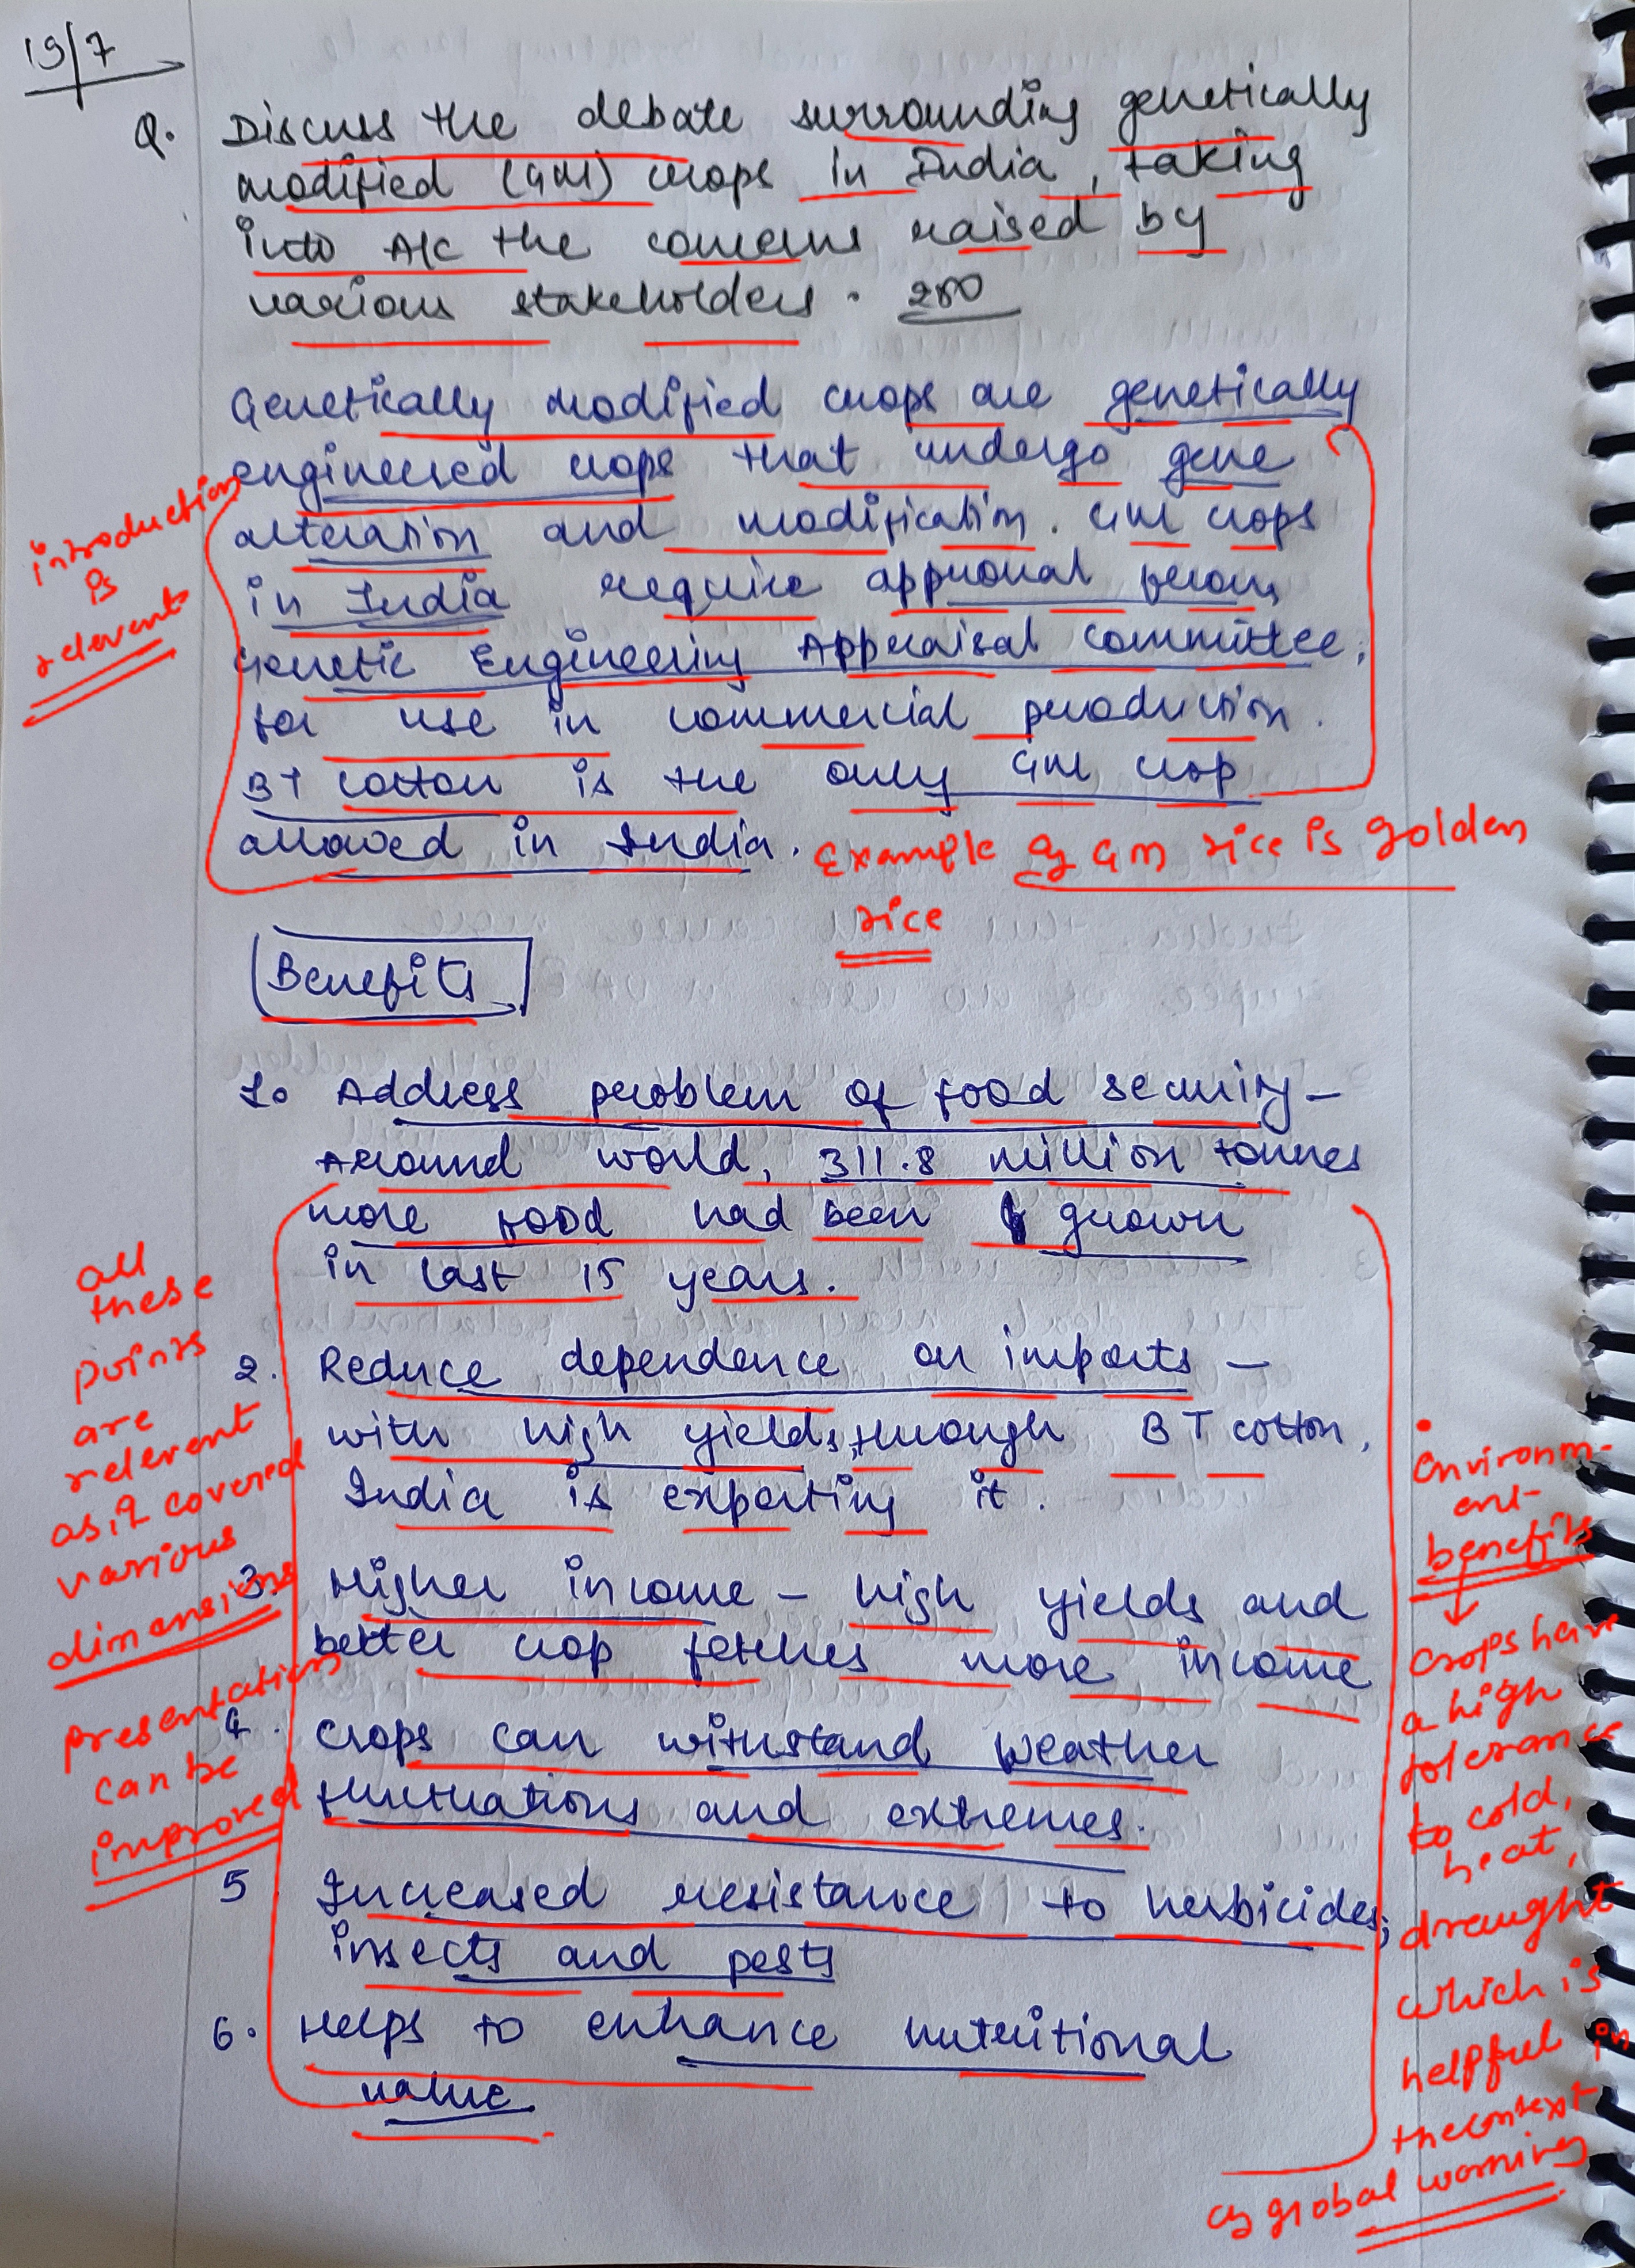 19/7
Q. Discuss the debate surrounding genetically
modified (GM) crops in India, taking
into A/c the concerns raised by
various stakeholders. 250
Genetically modified crops are genetically
engineered crops that undergo gene
alteration and modification. GM crops
in India require approval from
Genetic Engineering Appraisal Committee,
for use in commercial production.
BT cotton is the only GM crop
allowed in India.
introduction
is
relevent
Example of GM rice is golden
rice
Benefits
1. Address problem of food security -
Around world, 311.8 million tonnes
more food had been grown
in last 15 years.
2. Reduce dependence on imports -
with high yields, through BT cotton,
India is exporting it.
3. Higher income - high yields and
better crop fetches more income
4. Crops can withstand weather
fluctuations and extremes.
5 Increased resistance to herbicides,
insects and pests
6. Helps to enhance nutritional
value.
all
these
points
are
relevent
as it covered
various
dimensions
presentation
can be
improved
Environm-
ent-
benefits
crops have
a high
tolerance
to cold,
heat,
draught
which is
helpful in
the context
of global warming